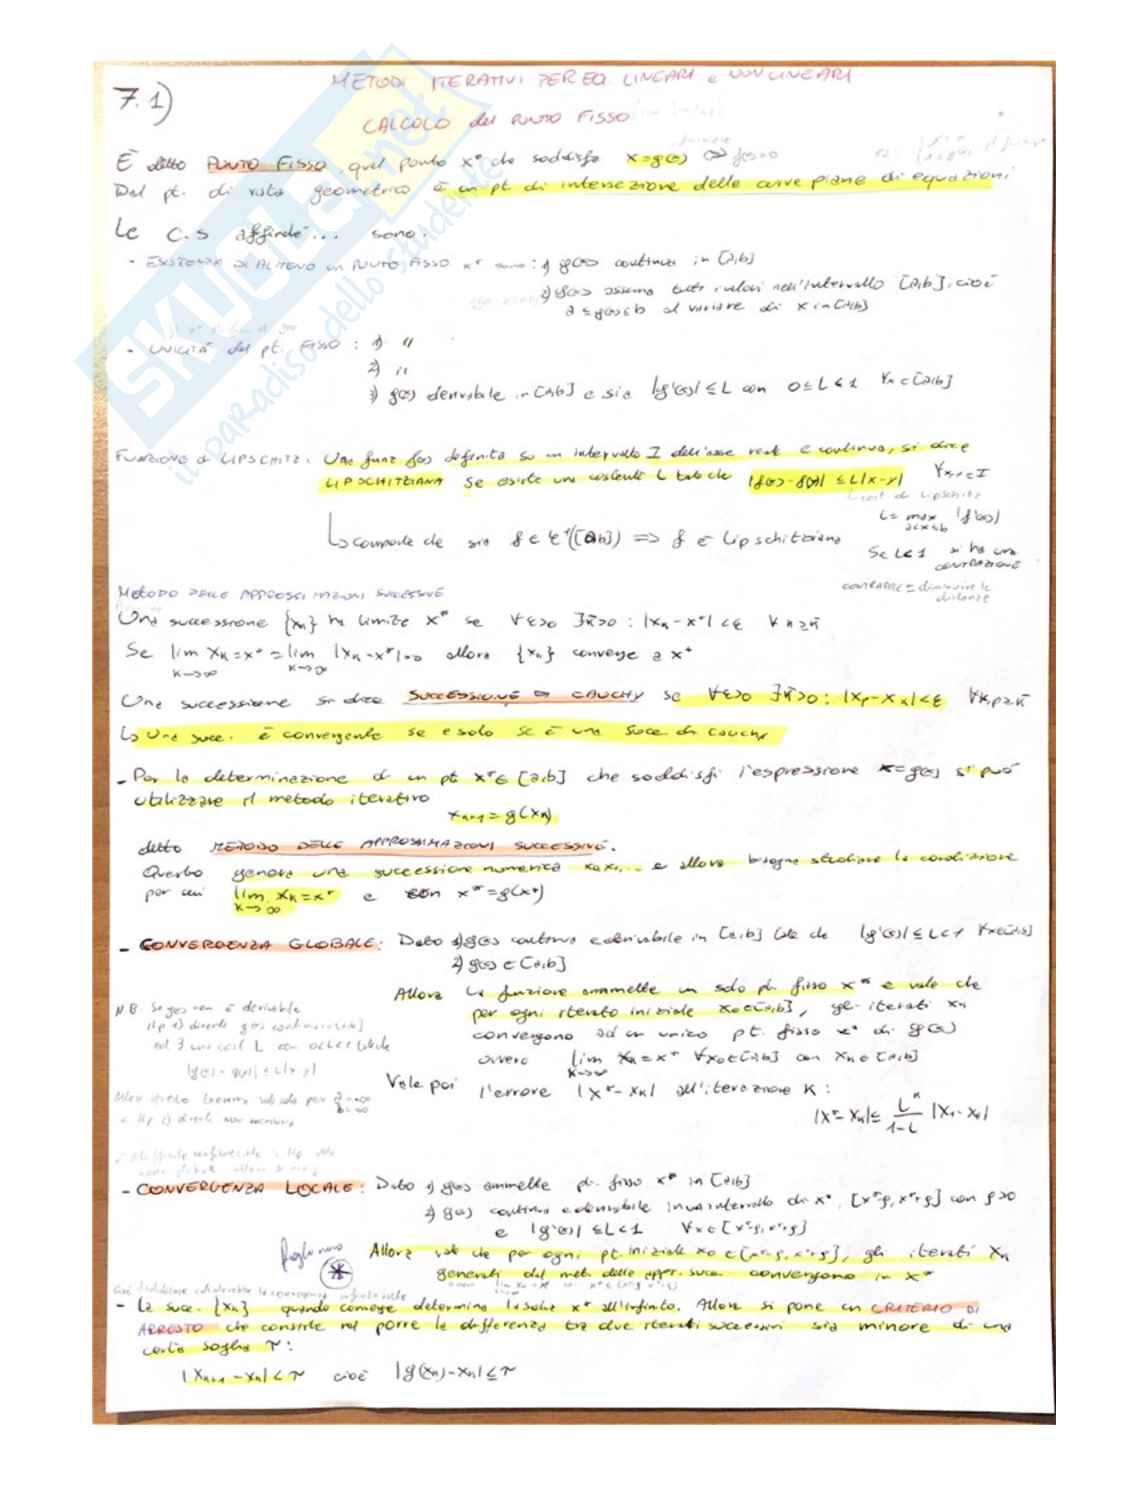 METODI ITERATIVI PER EQ. LINEARI e NON LINEARI
7.1)
CALCOLO del PUNTO FISSO
È detto PUNTO FISSO, quel punto x* che soddisfa x=g(x) ⇔ f(x)=0
Dal pt. di vista geometrico è un pt. di intersezione delle curve piane di equazioni
Le C.S affinché... sono:
- ESISTENZA DI ALMENO un PUNTO FISSO x* sono: 1) g(x) continua in [a,b]
2) g(x) assuma tutti i valori nell'intervallo [a,b], cioè
a ≤ g(x) ≤ b al variare di x in [a,b]
- UNICITÀ del pt. FISSO : 1) "
2) "
3) g(x) derivabile in [a,b] e sia |g'(x)| ≤ L con 0 ≤ L < 1 ∀x ∈ [a,b]
FUNZIONE di LIPSCHITZ. Una funz f(x) definita su un intervallo I dell'asse reale e continua, si dice
LIPSCHITZIANA se esiste una costante L tale che |f(x)-f(y)| ≤ L|x-y| ∀x,y∈I
cost di Lipschitz
L = max |f'(x)|
a≤x≤b
↳ comporta che sia f ∈ C¹([a,b]) ⇒ f è Lipschitziana
Se L<1 si ha una
CONTRAZIONE
CONTRARRE = diminuire le
distanze
METODO DELLE APPROSSIMAZIONI SUCCESSIVE
Una successione {xₙ} ha limite x* se ∀ε>0 ∃n̄>0 : |xₙ - x*| < ε ∀ n≥n̄
Se lim xₖ = x* = lim |xₖ - x*| = 0 allora {xₖ} converge a x*
k→∞ k→∞
Una successione si dice SUCCESSIONE DI CAUCHY se ∀ε>0 ∃k̄>0 : |xₚ - xₖ| < ε ∀k,p≥k̄
↳ Una succ. è convergente se e solo se è una succ di Cauchy
- Per la determinazione di un pt x* ∈ [a,b] che soddisfi l'espressione x=g(x) si può
utilizzare il metodo iterativo
xₖ₊₁ = g(xₖ)
detto METODO DELLE APPROSSIMAZIONI SUCCESSIVE.
Questo genera una successione numerica x₀,x₁,... e allora bisogna studiare la condizione
per cui lim xₖ = x* e con x* = g(x*)
k→∞
- CONVERGENZA GLOBALE: Dato 1) g(x) continua e derivabile in [a,b] tale che |g'(x)| ≤ L < 1 ∀x∈[a,b]
2) g(x) ∈ [a,b]
Allora la funzione ammette un solo pt. fisso x* e vale che
per ogni iterato iniziale x₀∈[a,b], gli iterati xₖ
convergono ad un unico pt. fisso x* di g(x)
ovvero lim xₖ = x* ∀x₀∈[a,b] con xₖ∈[a,b]
k→∞
N.B. Se g(x) non è derivabile
Hp 1) diventa g(x) continua in [a,b]
ed ∃ una cost L con 0<L<1 tale che
|g(x) - g(y)| ≤ L|x-y|
Vale poi l'errore |x* - xₖ| all'iterazione k :
|x* - xₖ| ≤ Lᵏ/(1-L) |x₁ - x₀|
- CONVERGENZA LOCALE: Dato 1) g(x) ammette pt. fisso x* in [a,b]
2) g(x) continua e derivabile in un intervallo di x*, [x*-ρ, x*+ρ] con ρ>0
e |g'(x)| ≤ L < 1 ∀x∈[x*-ρ, x*+ρ]
Allora vale che per ogni pt. iniziale x₀ ∈ [x*-ρ, x*+ρ], gli iterati xₖ
generati dal met. delle appr. succ. convergono in x*
- La succ. {xₖ} quando converge determina la soluz x* all'infinito. Allora si pone un CRITERIO DI
ARRESTO che consiste nel porre la differenza tra due iterati successivi sia minore di una
certa soglia τ:
|xₖ₊₁ - xₖ| < τ cioè |g(xₖ) - xₖ| ≤ τ
SKUOLA.net
il paradiso dello studente